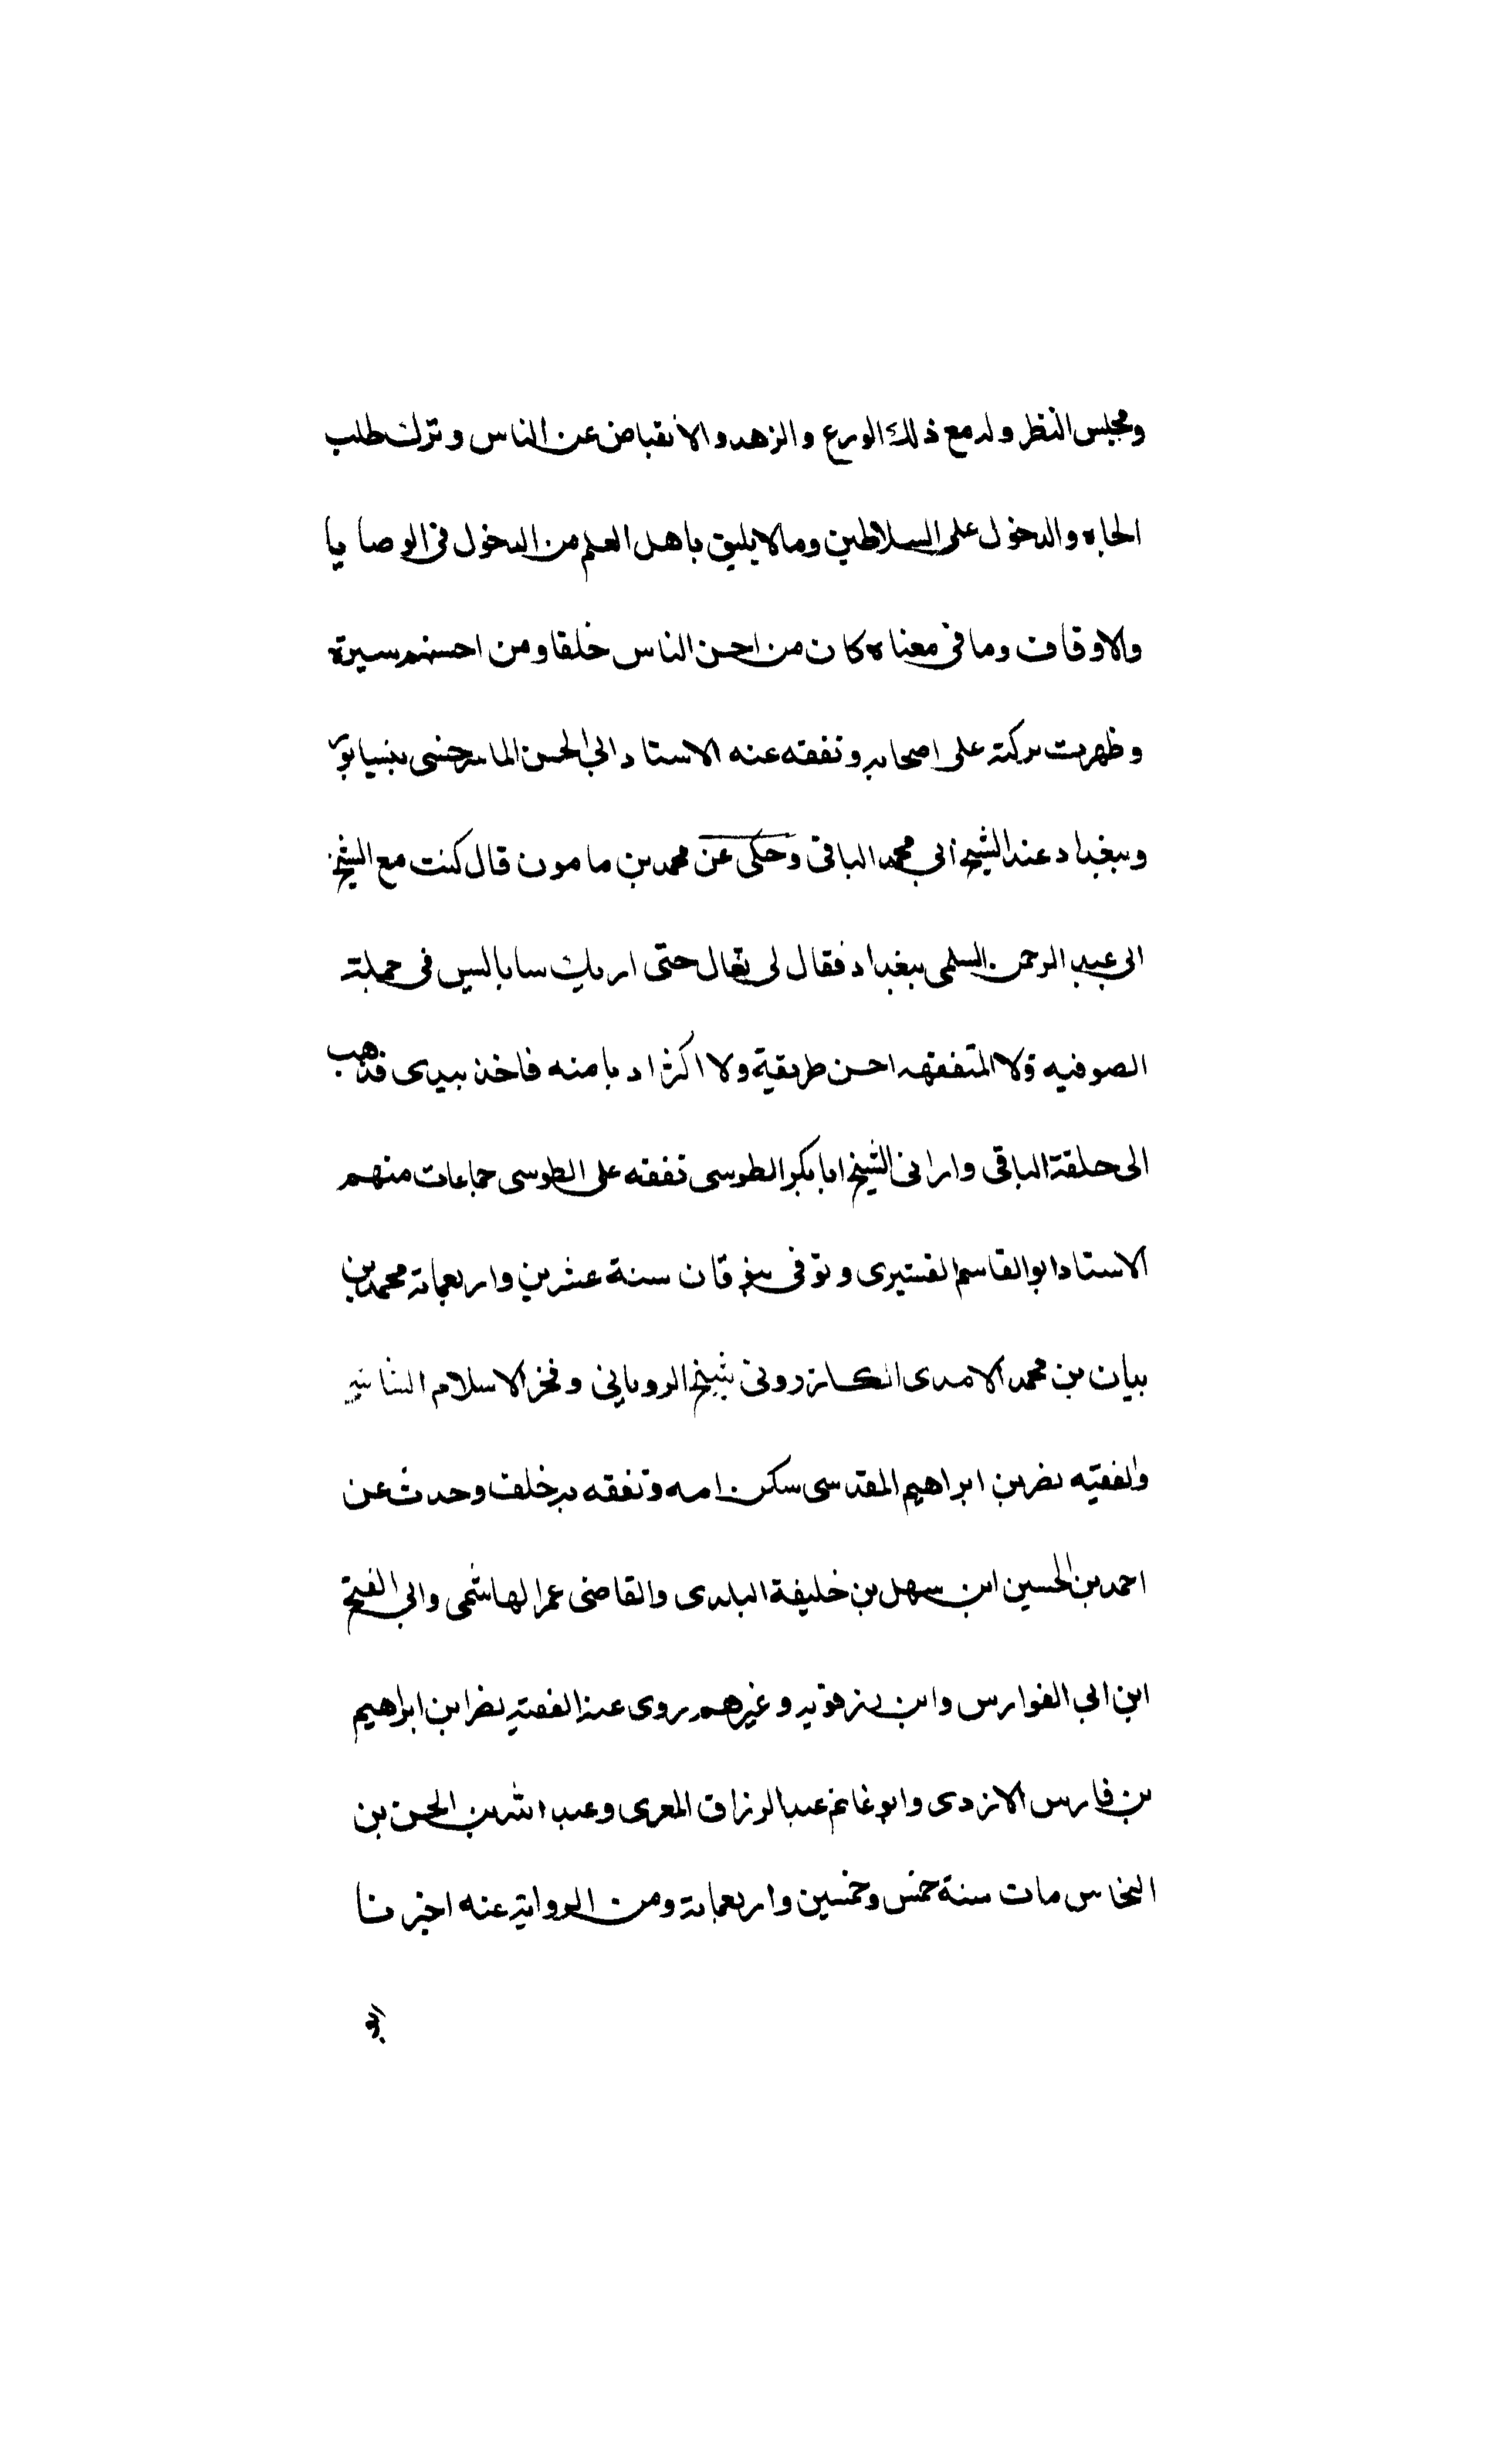 ومجلس النظر وله مع ذلك الورع والزهد والانقباض عن الناس وترك طلب
الجاه والدخول على السلاطين ومالا يليق باهل العلم من الدخول فى الوصايا
والاوقاف وما فى معناه كان من احسن الناس خلقا ومن احسنهم سيرة
وظهرت بركته على اصحابه وتفقه عنه الاستاد ابى الحسن الماسرجسى بنيسابور
وببغداد عند الشيخ ابى محمد الباقى وحكى عن محمد بن مامون قال كنت مع الشيخ
ابى عبد الرحمن السلمى ببغداد فقال لى تعال حتى اريك سابا ليس فى جملة
الصوفيه ولا المتفقهه احسن طريقة ولا اكثر ادبا منه فاخذ بيدى فذهب
الى حلقة الباقى وارانى الشيخ ابا بكر الطوسى تفقه على الطوسى جماعات منهم
الاستاد ابو القاسم القشيرى وتوفى بنوقان سنة عشرين واربعماية محمد بن
بيان بن محمد الامدى الكازرونى شيخ الرويانى وفخر الاسلام الشاشى
والفقيه نصر بن ابراهيم المقدسى سكن امد وتفقه به خلق وحدث عن
احمد بن الحسين ابن سهل بن خليفة البلدى والقاضى عمر الهاشمى وابى الفتح
ابن ابى الفوارس وابن رزقويه وغيرهم روى عنه الفقيه نصر ابن ابراهيم
بن فارس الازدى وابو غانم عبد الرزاق المعرى وعبد الله بن الحسن بن
النخاس مات سنة خمس وخمسين واربعماية ومن الرواية عنه اخبرنا